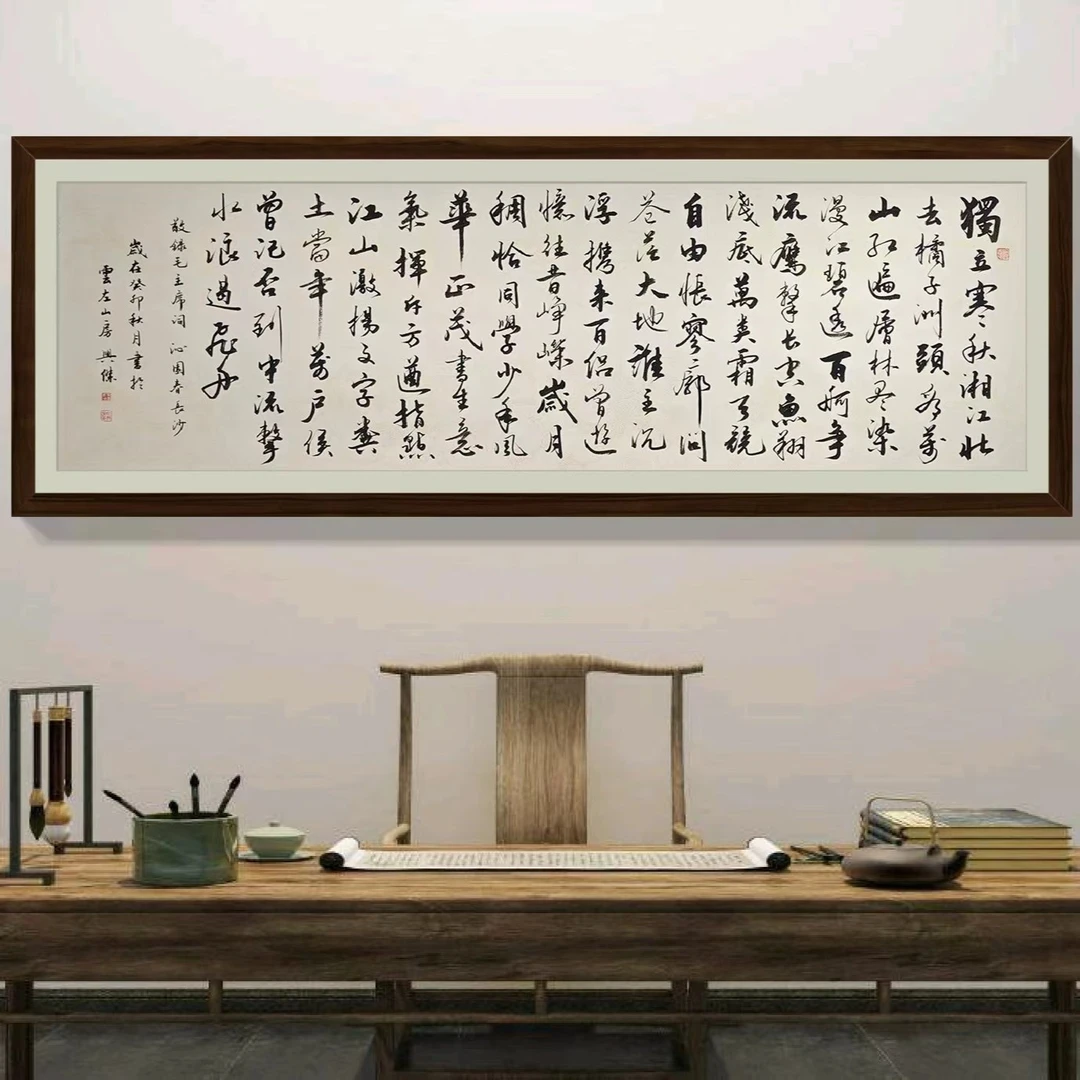 獨立寒秋湘江北
去橘子洲頭看萬
山紅遍層林盡染
漫江碧透百舸爭
流鷹擊長空魚翔
淺底萬类霜天競
自由悵寥廓問
蒼茫大地誰主沉
浮携来百侣曾遊
憶往昔崢嶸歲月
稠恰同學少年風
華正茂書生意
氣揮斥方遒指點
江山激揚文字糞
土當年萬戶侯
曾记否到中流擊
水浪遏飛舟
敬錄毛主席词沁園春长沙
歲在癸卯秋月書於
雲左山房興傑